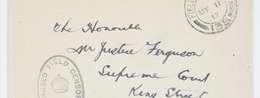 The Honourable
Mr Justice Ferguson
Supreme Court
King Street
FIELD
11
17
FIELD CENSOR